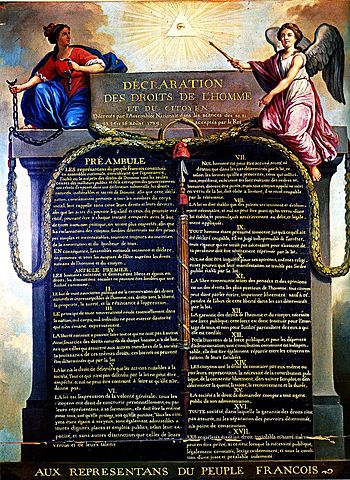 DÉCLARATION
DES DROITS DE L'HOMME
ET DU CITOYEN,
Décrétés par l'Assemblée Nationale dans les séances des 20, 21
23, 24 et 26 août 1789, acceptés par le Roi
PRÉAMBULE
LES représentans du peuple François constitués
en assemblée nationale, considérant que l'ignorance,
l'oubli ou le mépris des droits de l'homme sont les seules
causes des malheurs publics et de la corruption des gouvernemens
ont résolu d'exposer dans une déclaration solemnelle, les droits
naturels, inaliénables et sacrés de l'homme, afin que cette décla-
ration, constamment présente à tous les membres du corps
social, leur rappelle sans cesse leurs droits et leurs devoirs,
afin que les actes du pouvoir législatif et ceux du pouvoir exé-
cutif, pouvant être à chaque instant comparés avec le but
de toute institution politique, en soient plus respectés; afin que
les réclamations des citoyens, fondées désormais sur des princi-
pes simples et incontestables, tournent toujours au maintien de
la constitution et du bonheur de tous.
EN conséquence, l'assemblée nationale reconnoît et déclare,
en présence et sous les auspices de l'Être suprême les droits
suivans de l'homme et du citoyen.
ARTICLE PREMIER.
LES hommes naissent et demeurent libres et égaux en
droits, les distinctions sociales ne peuvent être fondées que sur
l'utilité commune
II.
LE but de toute association politique est la conservation des droits
naturels et imprescriptibles de l'homme; ces droits sont la liberté,
la propriété, la sureté, et la résistance à l'oppression.
III.
LE principe de toute souveraineté réside essentiellement dans
la nation, nul corps, nul individu ne peut exercer d'autorité
qui n'en émane expressément.
IV.
LA liberté consiste à pouvoir faire tout ce qui ne nuit pas à autrui
Ainsi, l'exercice des droits naturels de chaque homme, n'a de bor-
nes que celles qui assurent aux autres membres de la société
la jouissance de ces mêmes droits; ces bornes ne peuvent
être déterminées que par la loi
V.
LA loi n'a le droit de défendre que les actions nuisibles à la
société. Tout ce qui n'est pas défendu par la loi ne peut être
empêché, et nul ne peut être contraint à faire ce qu'elle n'or-
donne pas.
VI.
LA loi est l'expression de la volonté générale; tous les
citoyens ont droit de concourir personnellement, ou par
leurs représentans, à sa formation; elle doit être la même
pour tous, soit qu'elle protege, soit qu'elle punisse. Tous les cito-
yens étant égaux à ses yeux, sont également admissibles à
toutes dignités, places et emplois publics, selon leur ca-
pacité, et sans autres distinction que celles de leurs
vertus et de leurs talens.
VII.
NUL homme ne peut être accusé, arrêté ni
détenu que dans les cas déterminés par la loi, et
selon les formes qu'elle a prescrites, ceux qui sollici-
tent, expédient, exécutent ou font exécuter des ordres ar-
bitraires, doivent être punis; mais tout citoyen appelé ou saisi
en vertu de la loi, doit obéir à l'instant, il se rend coupable
par la résistance.
VIII.
LA loi ne doit établir que des peines strictement et évidem-
ment nécessaire, et nul ne peut être puni qu'en vertu d'une
loi établie et promulguée antérieurement au délit, et légale-
ment appliquée.
IX.
TOUT homme étant présumé innocent jusqu'à ce qu'il ait
été déclaré coupable, s'il est jugé indispensable de l'arrêter,
toute rigueur qui ne serait pas nécessaire pour s'assurer de
sa personne doit être sévèrement réprimée par la loi.
X.
NUL ne doit être inquiété pour ses opinions, mêmes religi-
euses pourvu que leur manifestation ne trouble pas l'ordre
public établi par la loi.
XI.
LA libre communication des pensées et des opinions
est un des droits les plus précieux de l'homme; tout citoyen
peut donc parler, écrire, imprimer librement: sauf à ré-
pondre de l'abus de cette liberté dans les cas déterminés
par la loi.
XII.
LA garantie des droits de l'homme et du citoyen nécessite
une force publique; cette force est donc instituée pour l'avan-
tage de tous, et non pour l'utilité particuliere de ceux à
qui elle est confiée.
XIII.
POUR l'entretien de la force publique, et pour les dépenses
d'administration, une contribution commune est indispensa-
ble; elle doit être également répartie entre les citoyens en
raison de leurs facultés
XIV.
LES citoyens ont le droit de constater par eux même ou
par leurs représentans, la nécessité de la contribution pub-
lique, de la consentir librement, d'en suivre l'emploi, et d'en
déterminer la quotité, l'assiette, le recouvrement et la durée.
XV.
LA société a le droit de demander compte à tout agent
public de son administration.
XVI.
TOUTE société, dans laquelle la garantie des droits n'est
pas assurée, ni la séparation des pouvoirs déterminée,
n'a point de constitution.
XVII.
LES propriétés étant un droit inviolable et sacré, nul ne
peut en être privé, si ce n'est lorsque la nécessité publique,
légalement constatée, l'exige évidemment, et sous la condition
d'une juste et préalable indemnité.
AUX REPRESENTANS DU PEUPLE FRANCOIS